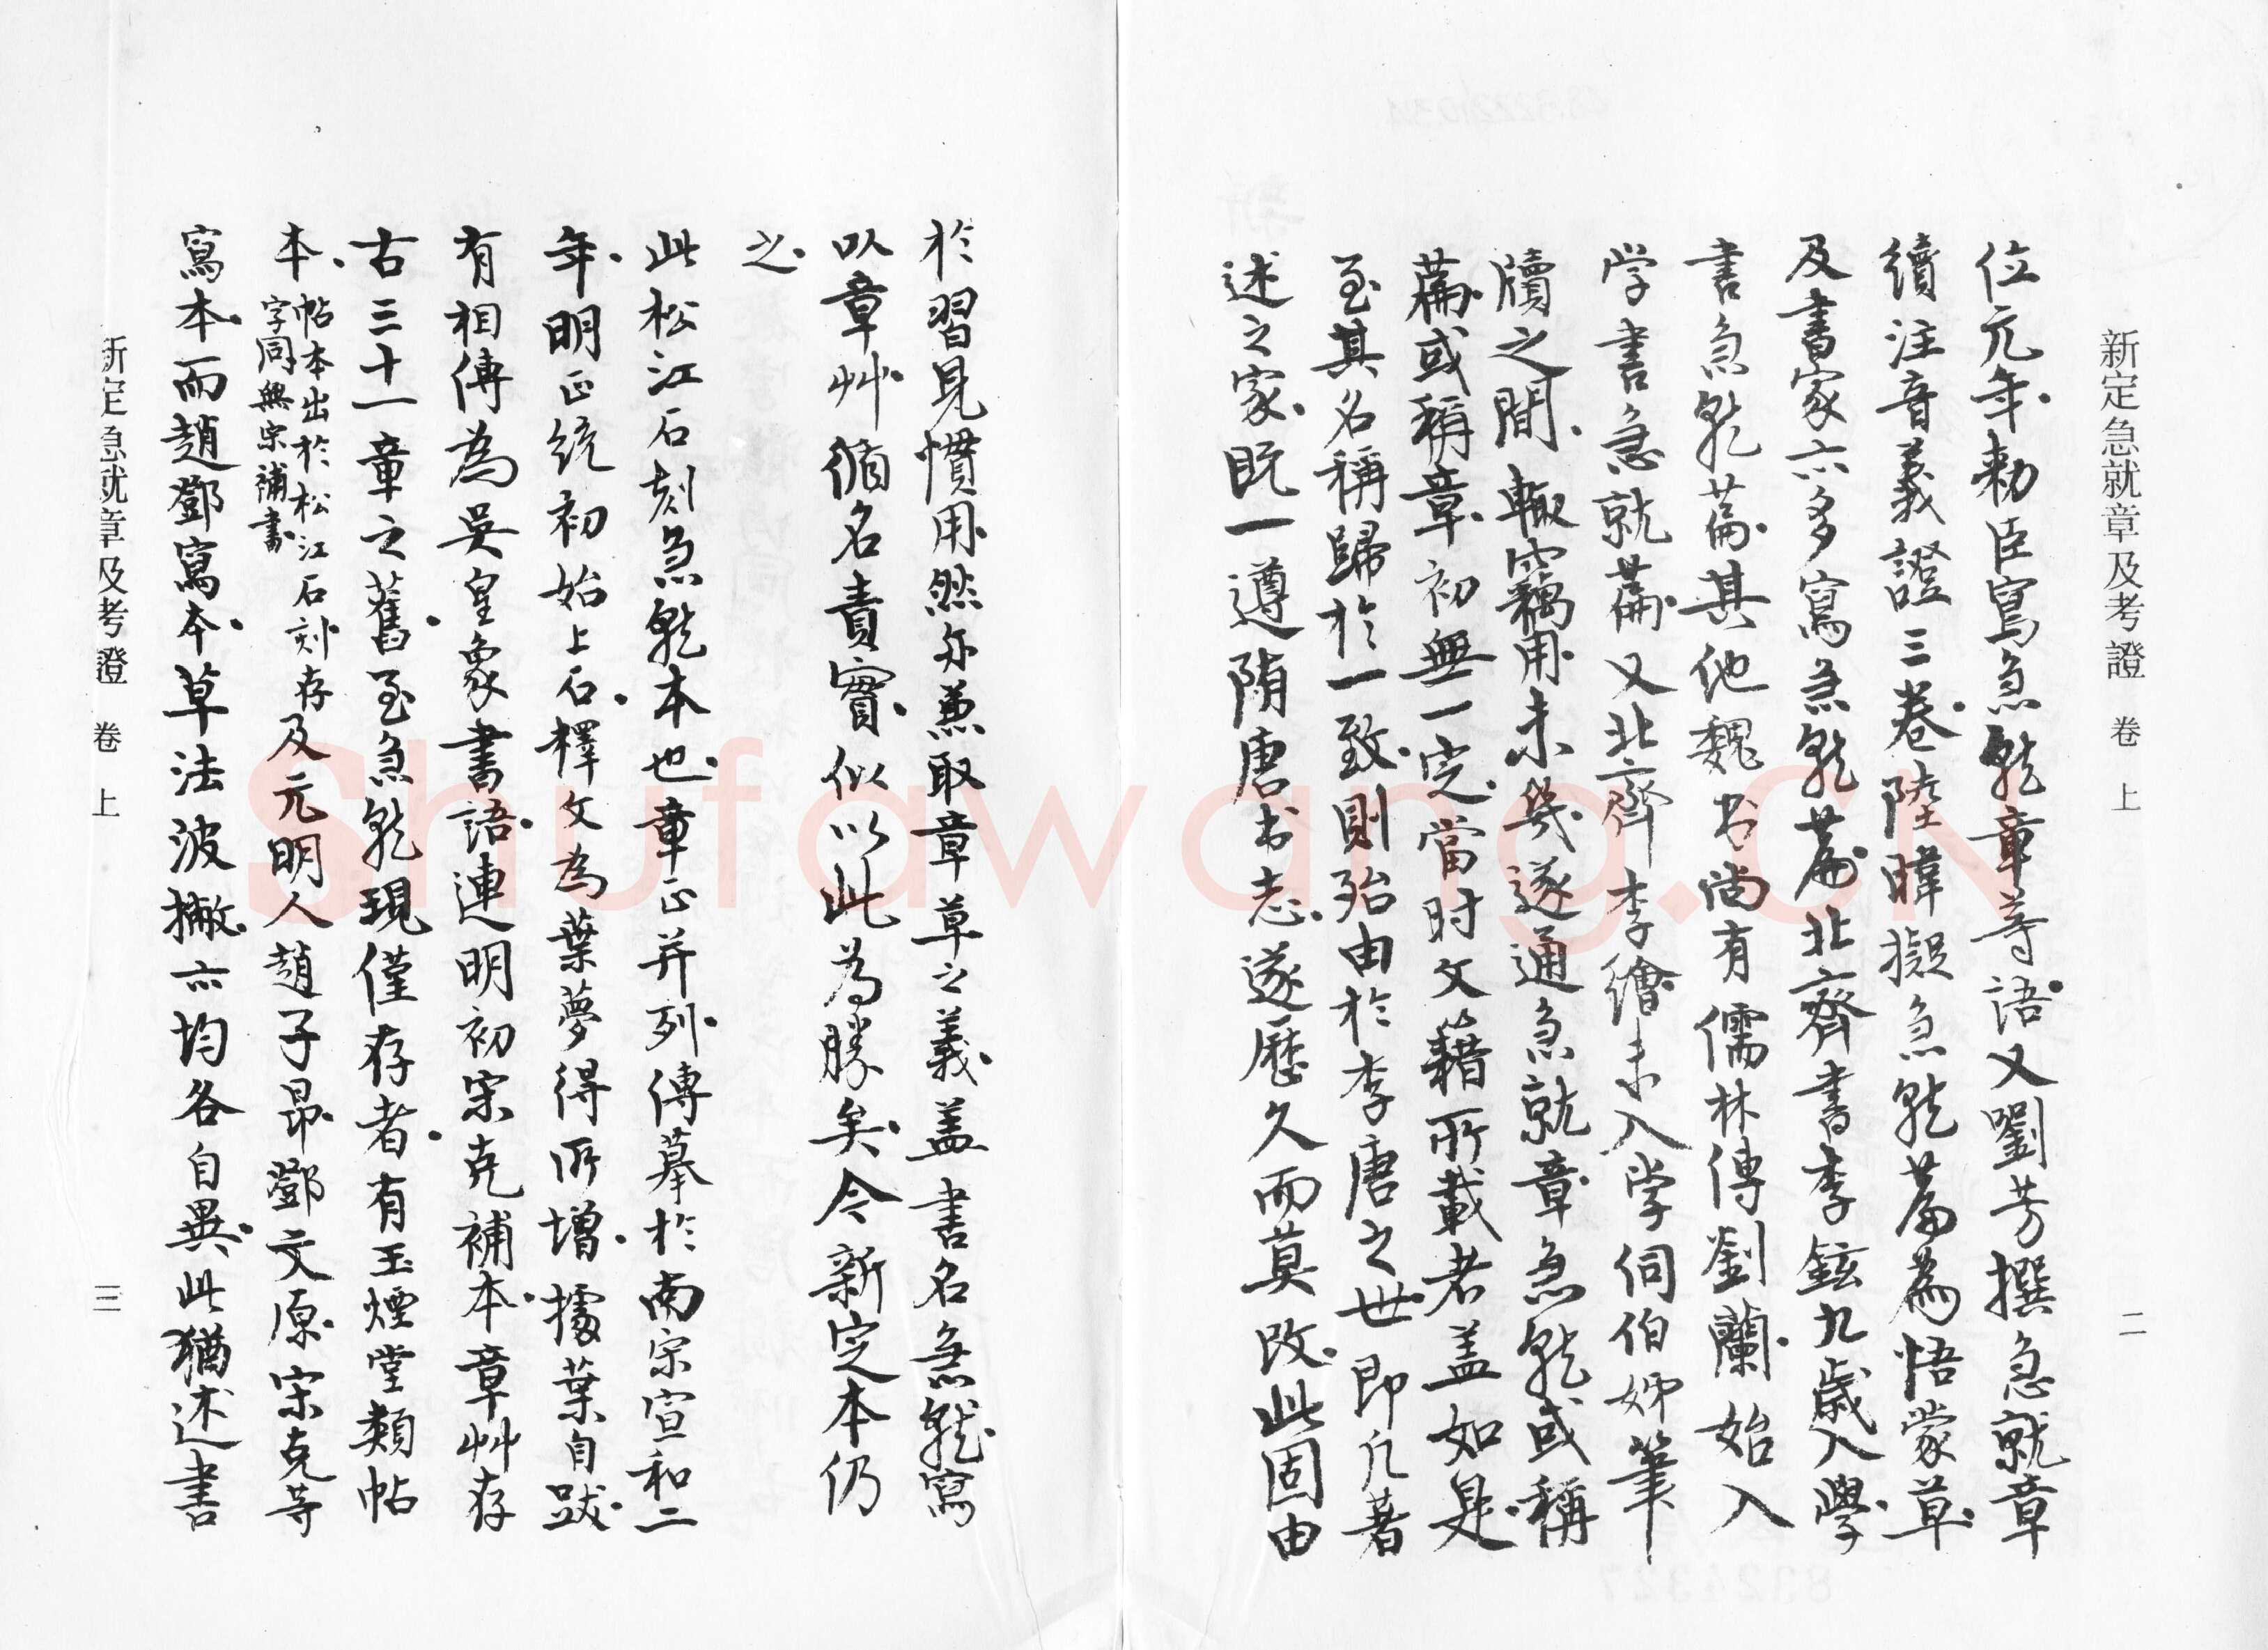 新定急就章及考證 卷上 二
位元年敕臣寫急就章等語又劉芳撰急就章
續注音義證三卷陸暐擬急就篇為悟蒙章
及書家六多寫急就篇北齊書李鉉九歲入學
書急就篇其他魏书尚有儒林傳劉蘭始入
学書急就篇又北齊李繪未入学伺伯姉筆
牘之間輙竊用未幾遂通急就章急就或稱
篇或稱章初無一定當时文籍所載者盖如是
至其名稱歸於一致則殆由於李唐之世即凡著
述之家既一遵隋唐书志遂歷久而莫改此固由
於習見慣用然亦兼取章草之義盖書名急就寫
以章艸循名責實似以此為勝矣今新定本仍
之
此松江石刻急就本也章正并列傳摹於南宋宣和二
年明正统初始上石釋文為葉夢得所增據葉自跋
有相傳為吳皇象書語連明初宋克補本章艸存
古三十一章之舊至急就現僅存者有玉煙堂類帖
本帖本出於松江石刻存字同無宋補書及元明人趙子昂鄧文原宋克等
寫本而趙鄧寫本草法波撇六均各自異此猶述書
新定急就章及考證 卷上 三
Shufawang.CN
8324327